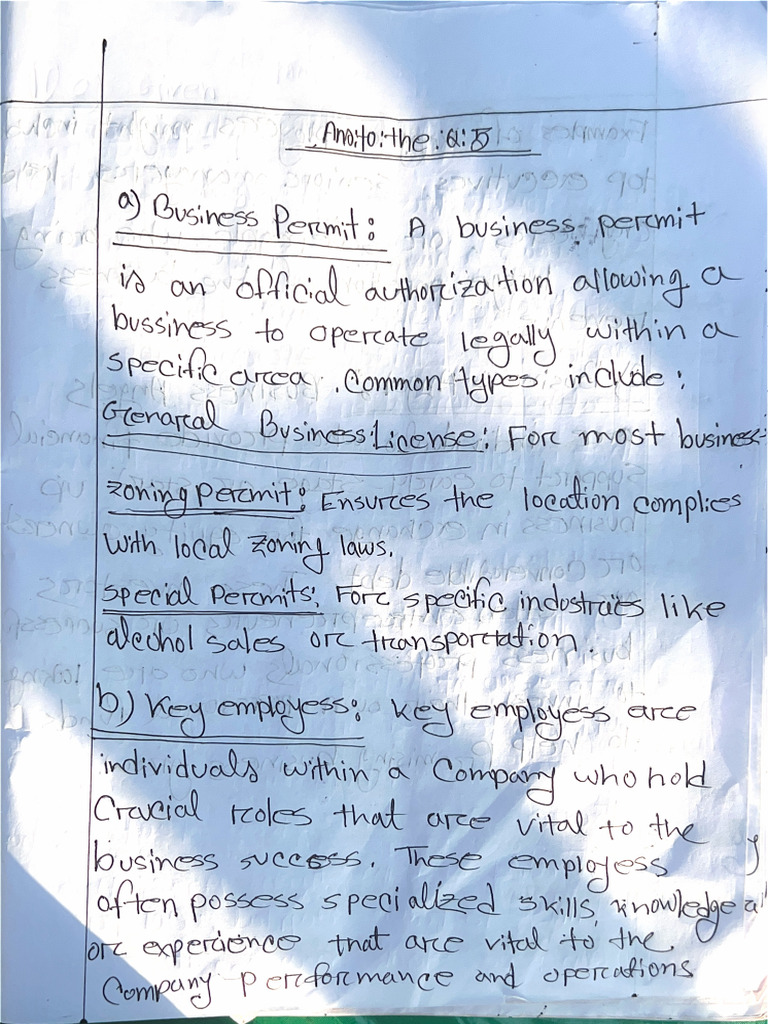 Ans:to:the:Q:5
a) Business Permit: A business permit
is an official authorization allowing a
bussiness to operate legally within a
specific area. Common types include:
Genaral Business License: For most business
Zoning Permit: Ensures the location complies
with local zoning laws.
Special Permits: For specific industries like
alcohol sales or transportation.
b) Key employess: Key employess are
individuals within a Company who hold
Crucial roles that are vital to the
business success. These employess
often possess specialized skills, knowledge
or experience that are vital to the
Company performance and operations